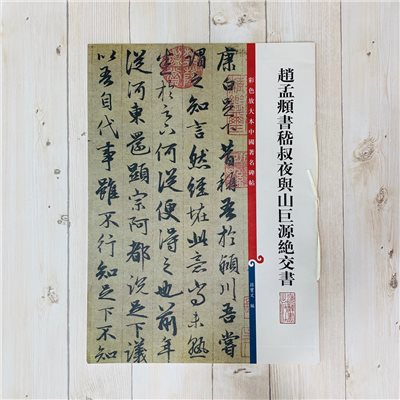 趙孟頫書嵇叔夜與山巨源絶交書
彩色放大本中國著名碑帖
孫寶文 編
康白足下昔稱吾於潁川吾嘗
謂之知言然經怪此意尚未熟
悉於足下何從便得之也前年
從河東還顯宗阿都說足下議
以吾自代事雖不行知足下不